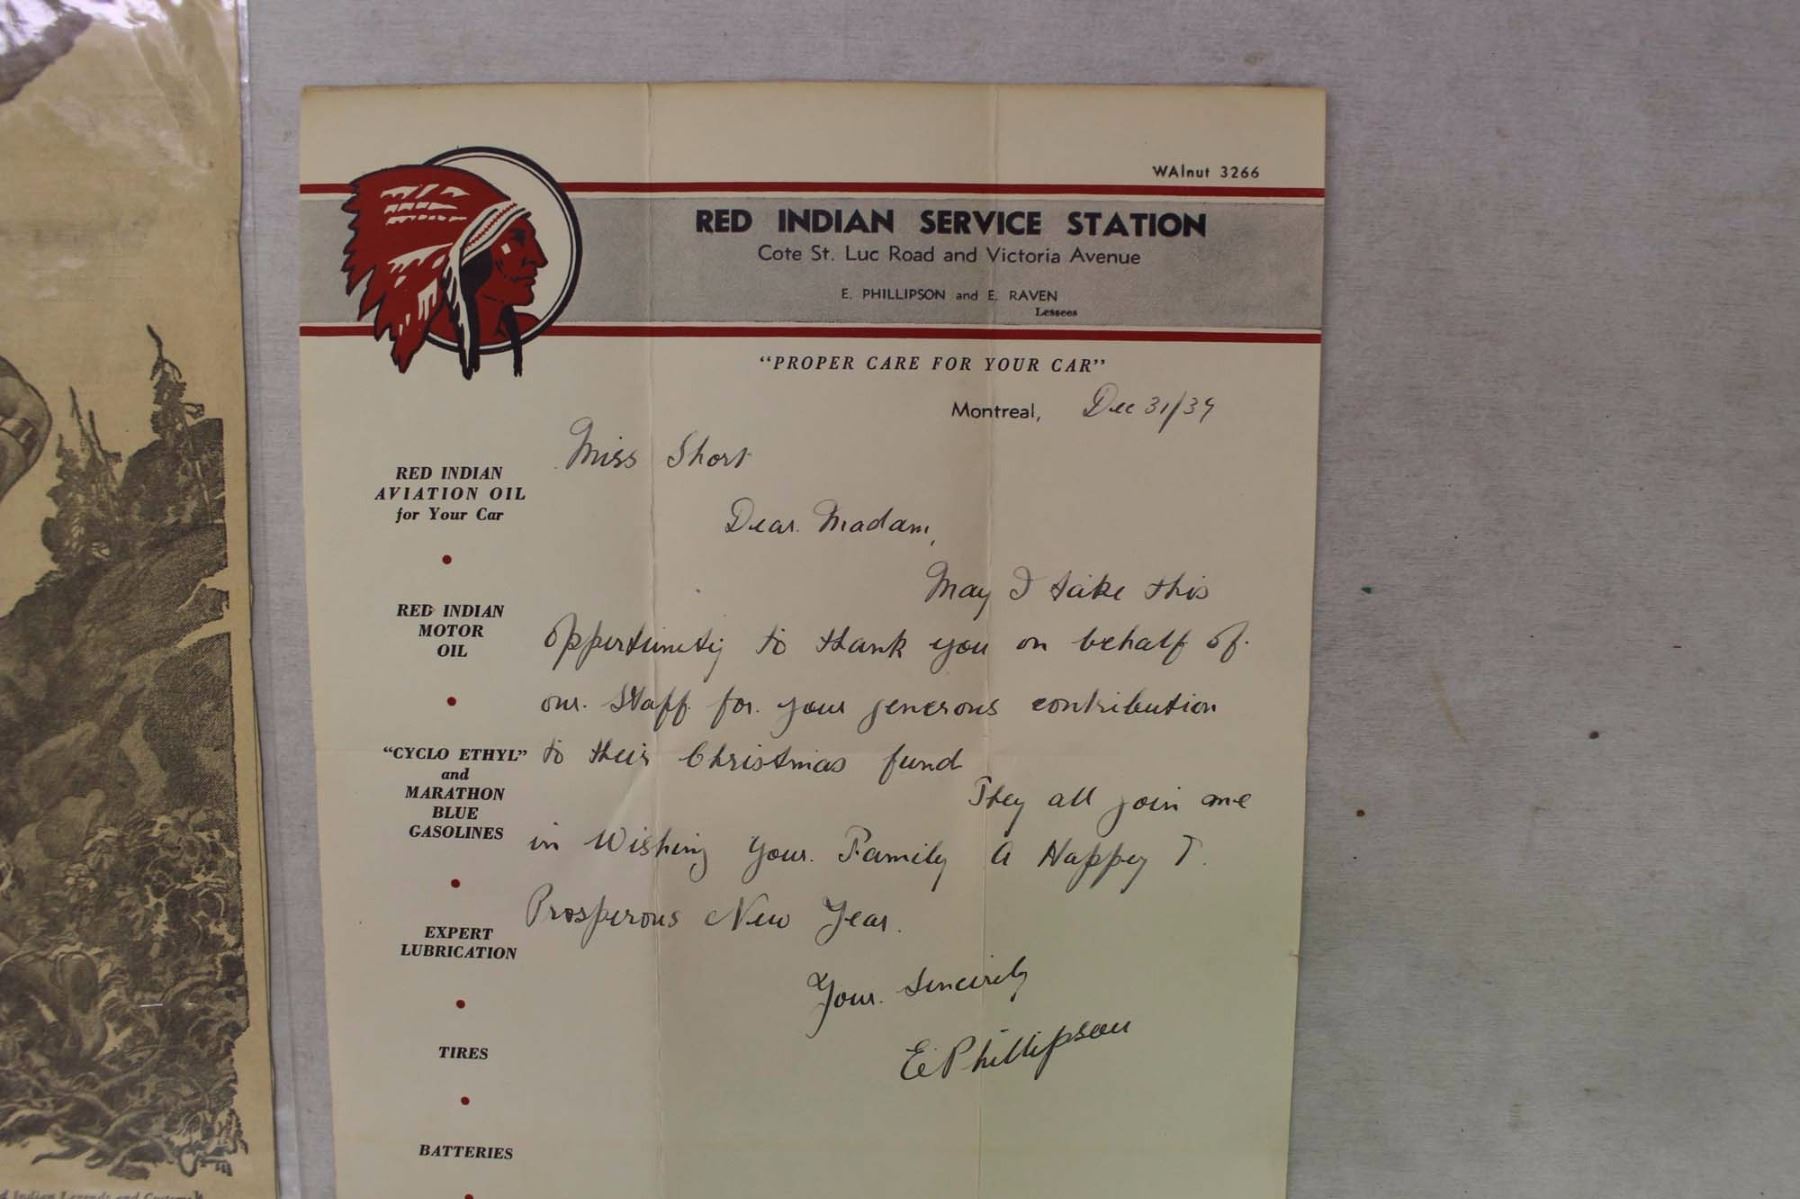 WAlnut 3266
RED INDIAN SERVICE STATION
Cote St. Luc Road and Victoria Avenue
E. PHILLIPSON and E. RAVEN
Lessees
"PROPER CARE FOR YOUR CAR"
Montreal, Dec 31/39
Miss Short
Dear Madam,
May I take this
opportunity to thank you on behalf of
our Staff for your generous contribution
to their Christmas fund
They all join me
in Wishing Your Family A Happy
Prosperous New Year.
Your Sincerely
E. Phillipson
RED INDIAN
AVIATION OIL
for Your Car
RED INDIAN
MOTOR
OIL
"CYCLO ETHYL"
and
MARATHON
BLUE
GASOLINES
EXPERT
LUBRICATION
TIRES
BATTERIES
Indian Legends and Customs